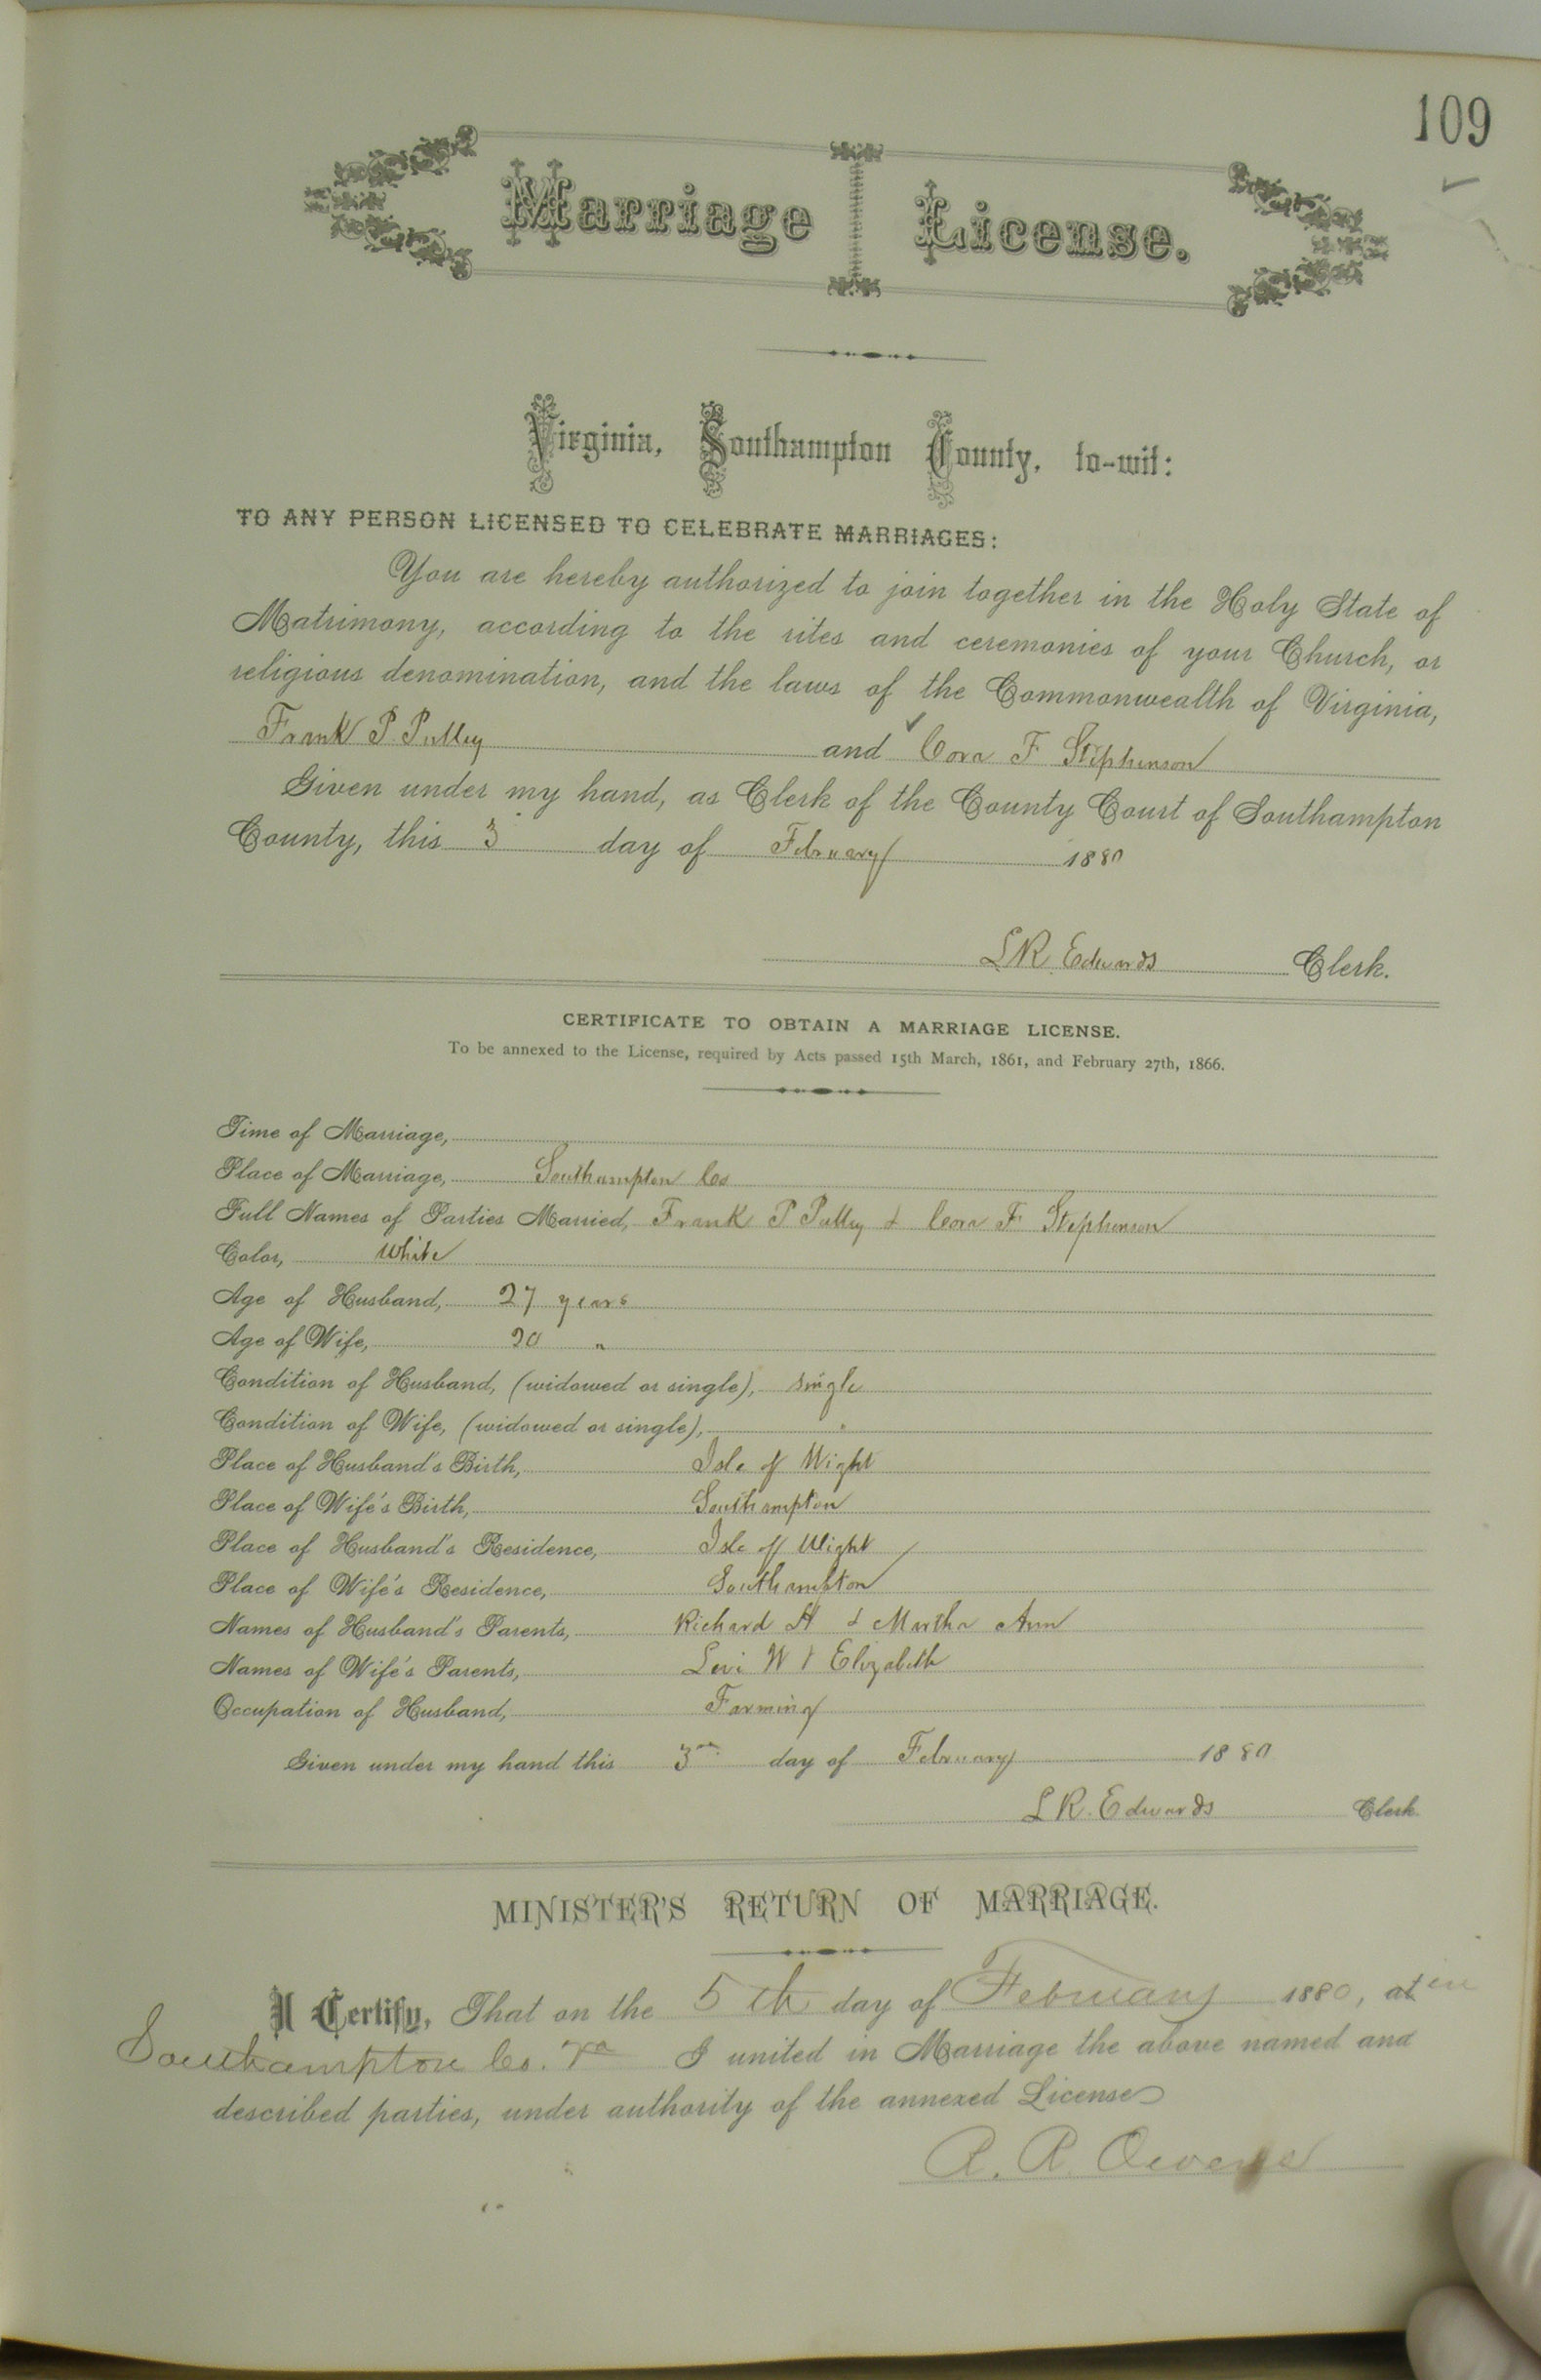 109
Marriage License.
Virginia, Southampton County, to-wit:
TO ANY PERSON LICENSED TO CELEBRATE MARRIAGES:
You are hereby authorized to join together in the Holy State of
Matrimony, according to the rites and ceremonies of your Church, or
religious denomination, and the laws of the Commonwealth of Virginia,
Frank P. Pulley and Cora F Stephenson
Given under my hand, as Clerk of the County Court of Southampton
County, this 3 day of February 1880
L R. Edwards Clerk.
CERTIFICATE TO OBTAIN A MARRIAGE LICENSE.
To be annexed to the License, required by Acts passed 15th March, 1861, and February 27th, 1866.
Time of Marriage,
Place of Marriage, Southampton Co
Full Names of Parties Married, Frank P Pulley & Cora F Stephenson
Color, White
Age of Husband, 27 years
Age of Wife, 20 "
Condition of Husband, (widowed or single), single
Condition of Wife, (widowed or single), "
Place of Husband's Birth, Isle of Wight
Place of Wife's Birth, Southampton
Place of Husband's Residence, Isle of Wight
Place of Wife's Residence, Southampton
Names of Husband's Parents, Richard H & Martha Ann
Names of Wife's Parents, Levi W & Elizabeth
Occupation of Husband, Farming
Given under my hand this 3rd day of February 1880
L R. Edwards Clerk.
MINISTER'S RETURN OF MARRIAGE.
I Certify, That on the 5th day of February 1880, at in
Southampton Co. Va I united in Marriage the above named and
described parties, under authority of the annexed License
R. R. Owens